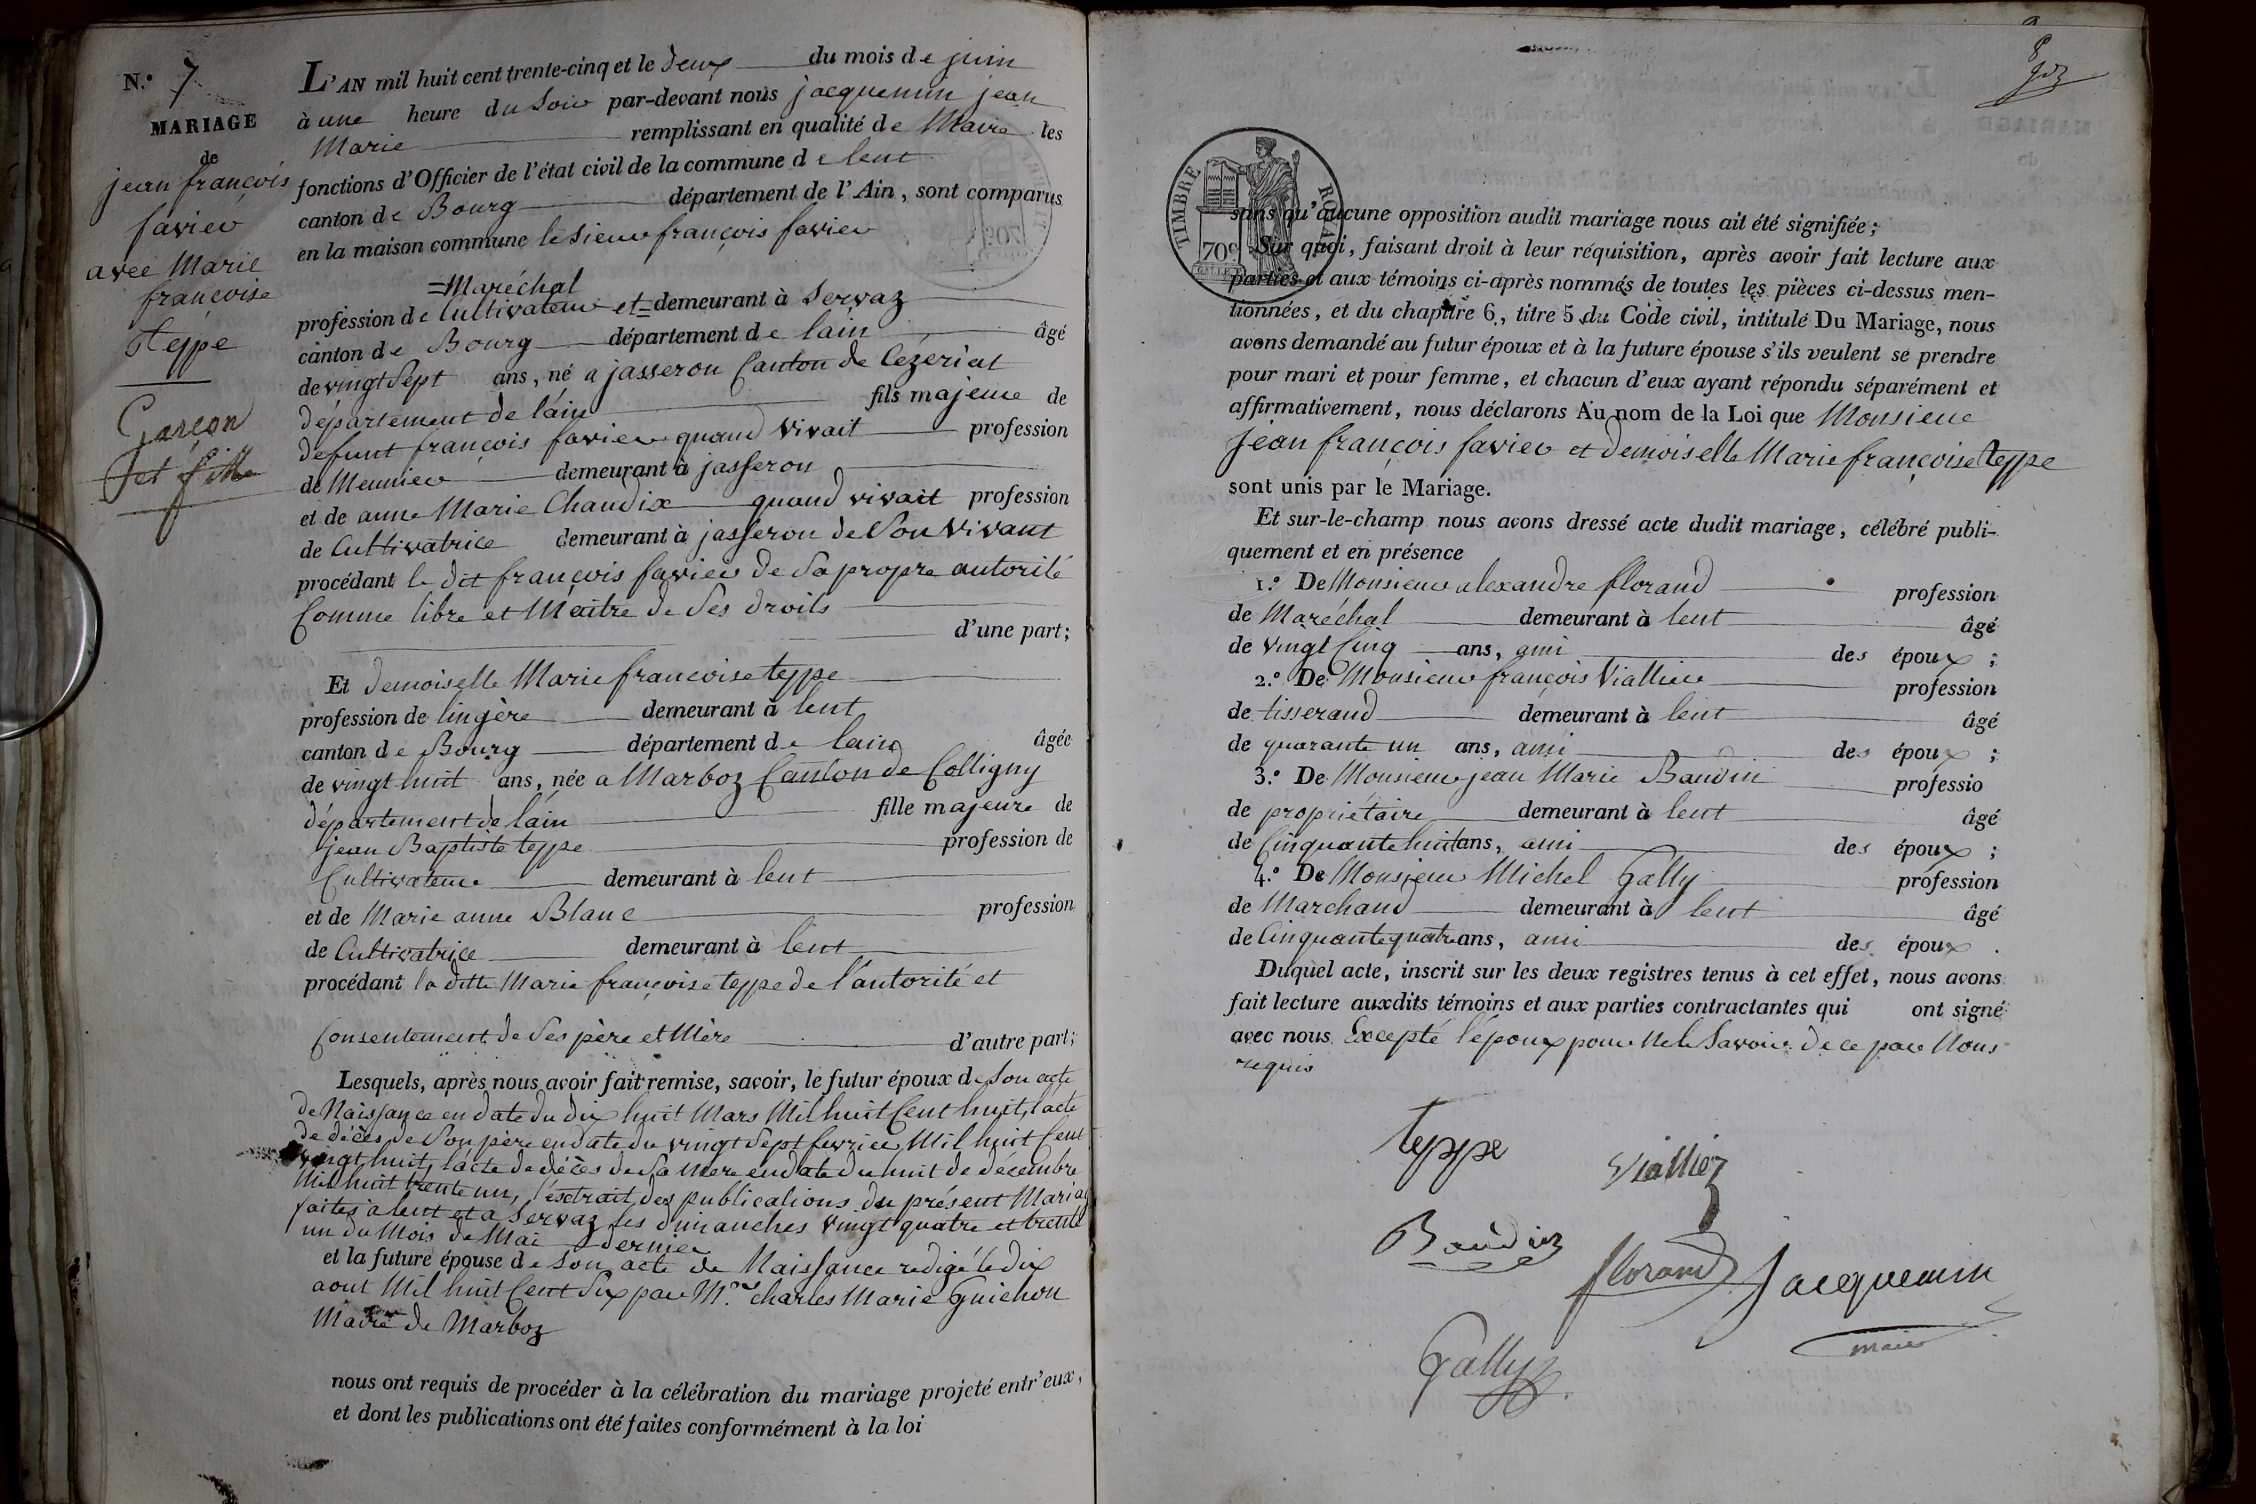 N.° 7
MARIAGE
de
jean françois
favier
avec Marie
françoise
teppe
Garçon
et fille
L'AN mil huit cent trente-cinq et le deux du mois de juin
à une heure du soir par-devant nous jacquemin jean
Marie remplissant en qualité de Maire les
fonctions d'Officier de l'état civil de la commune de lent
canton de Bourg département de l'Ain, sont comparus
en la maison commune le sieur françois favier
=Maréchal
profession de Cultivateur et= demeurant à Servaz
canton de Bourg département de lain âgé
de vingt Sept ans, né a jasseron Canton de Cézeriat
département de lain fils majeur de
defunt françois favier quand vivait profession
de Meunier demeurant à jasseron
et de anne Marie Chaudix quand vivait profession
de Cultivatrice demeurant à jasseron de Son vivant
procédant le dit françois favier de Sa propre autorité
Comme libre et Maître de Ses droits
d'une part;
Et demoiselle Marie francoise teppe
profession de lingère demeurant à lent
canton de Bourg département de lain âgée
de vingt huit ans, née a Marboz Canton de Colligny
département de lain fille majeure de
jean Baptiste teppe profession de
Cultivateur demeurant à lent
et de Marie anne Blanc profession
de Cultivatrice demeurant à lent
procédant la ditte Marie françoise teppe de l'autorité et
Consentement de Ses père et Mère d'autre part;
Lesquels, après nous avoir fait remise, savoir, le futur époux de Son acte
de Naissance en date du dix huit Mars Mil huit Cent huit, l'acte
de décès de Son père en date du vingt Sept fevrier Mil huit Cent
vingt huit, l'acte de décès de Sa Mere en date du huit de décembre
Mil huit trente un, l'extrait des publications du présent Mariage
faites à lent et a Servaz les dimanches vingt quatre et trente
un du Mois de Mai dernier
et la future épouse de Son acte de Naissance redigé le dix
aout Mil huit Cent Six par M.r charles Marie Guichon
Maire de Marboz
nous ont requis de procéder à la célébration du mariage projeté entr'eux,
et dont les publications ont été faites conformément à la loi
TIMBRE ROYAL
70c
sans qu'aucune opposition audit mariage nous ait été signifiée;
Sur quoi, faisant droit à leur réquisition, après avoir fait lecture aux
parties et aux témoins ci-après nommés de toutes les pièces ci-dessus men-
tionnées, et du chapitre 6, titre 5 du Code civil, intitulé Du Mariage, nous
avons demandé au futur époux et à la future épouse s'ils veulent se prendre
pour mari et pour femme, et chacun d'eux ayant répondu séparément et
affirmativement, nous déclarons Au nom de la Loi que Monsieur
jean françois favier et demoiselle Marie françoise teppe
sont unis par le Mariage.
Et sur-le-champ nous avons dressé acte dudit mariage, célébré publi-
quement et en présence
1.° De Monsieur alexandre florand profession
de Maréchal demeurant à lent âgé
de vingt Cinq ans, ami des époux;
2.° De Monsieur françois Viallier profession
de tisserand demeurant à lent âgé
de quarante un ans, ami des époux;
3.° De Monsieur jean Marie Baudin professio
de propriétaire demeurant à lent âgé
de Cinquante huit ans, ami des époux;
4.° De Monsieur Michel Gally profession
de Marchand demeurant à lent âgé
de Cinquante quatre ans, ami des époux.
Duquel acte, inscrit sur les deux registres tenus à cet effet, nous avons
fait lecture auxdits témoins et aux parties contractantes qui ont signé
avec nous Excepté l'époux pour Ne le Savoir de ce par Nous
requis
teppe
Viallier
Baudin
florand
Jacquemin
maire
Gally